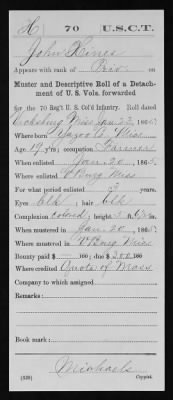 H | 70 | U.S.C.T.
John Hines
Appears with rank of Priv. on
Muster and Descriptive Roll of a Detach-
ment of U. S. Vols. forwarded
for the 70 Reg't U. S. Col'd Infantry. Roll dated
Vicksburg Miss Jan 23, 1865.
Where born Yazoo Co. Miss
Age 19 y'rs; occupation Farmer
When enlisted Jan. 20, 1865.
Where enlisted V'Burg Miss
For what period enlisted 3 years.
Eyes blk; hair blk
Complexion colored; height 5 ft. in.
When mustered in Jan. 20, 1865.
Where mustered in V'Burg Miss
Bounty paid $ 100; due $ 100
Where credited Quota of Mass
Company to which assigned
Remarks:
Book mark:
Michaels
(339) Copyist.